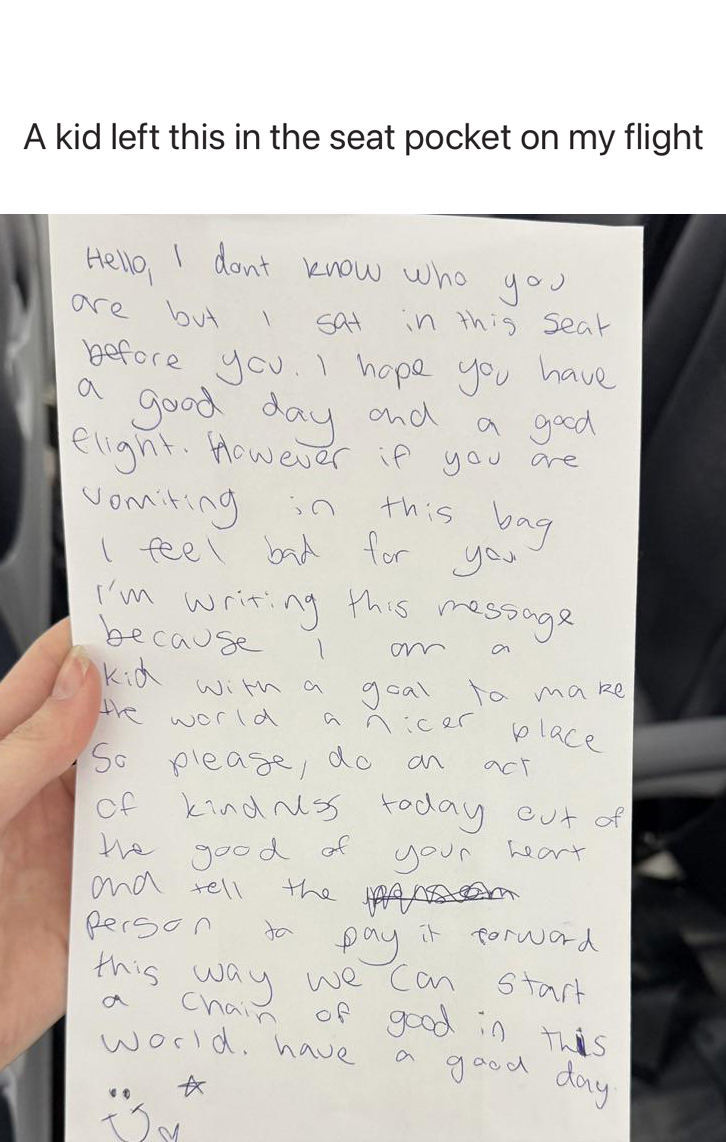 A kid left this in the seat pocket on my flight
Hello, I dont know who you
are but I sat in this seat
before you. I hope you have
a good day and a good
flight. However if you are
vomiting in this bag
I feel bad for you
I'm writing this message
because I am a
kid with a goal to make
the world a nicer place
So please, do an act
of kindness today out of
the good of your heart
and tell the
person to pay it forward
this way we can start
a chain of good in this
world. have a good day.